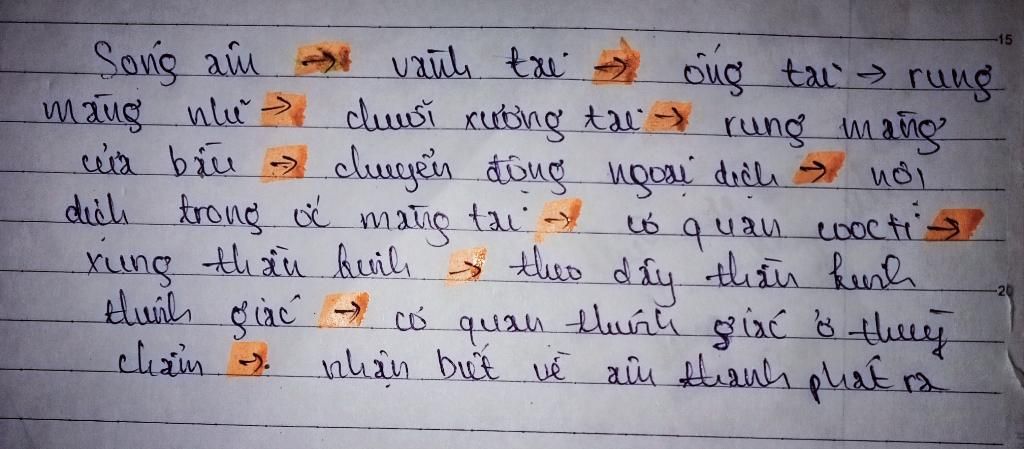 Sóng âm → vành tai → ống tai → rung
màng nhĩ → chuỗi xương tai → rung màng
cửa bầu → chuyển động ngoại dịch → nội
dịch trong ốc màng tai → cơ quan coocti →
xung thần kinh → theo dây thần kinh
thính giác → cơ quan thính giác ở thuỳ
chẩm → nhận biết về âm thanh phát ra
15
20